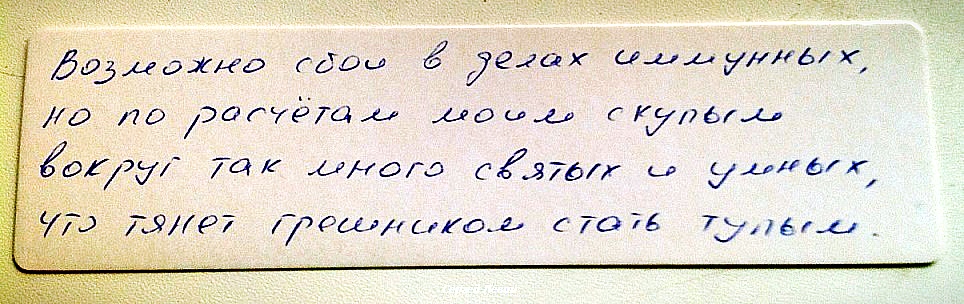 Возможно сбои в делах иммунных,
но по расчётам моим скупым
вокруг так много святых и умных,
что тянет грешником стать тупым.